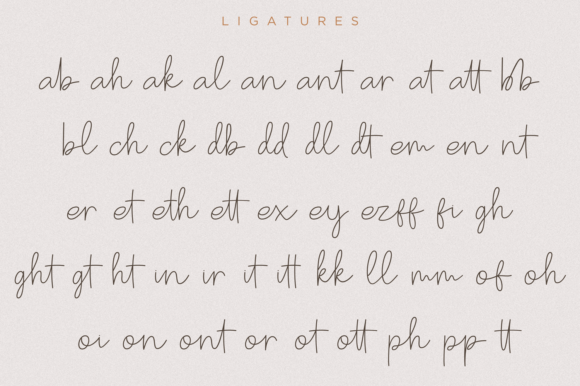 LIGATURES
ab ah ak al an ant ar at att bb
bl ch ck db dd dl dt em en nt
er et eth ett ex ey ez ff fi gh
ght gt ht in ir it itt kk ll mm of oh
oi on ont or ot ott ph pp tt